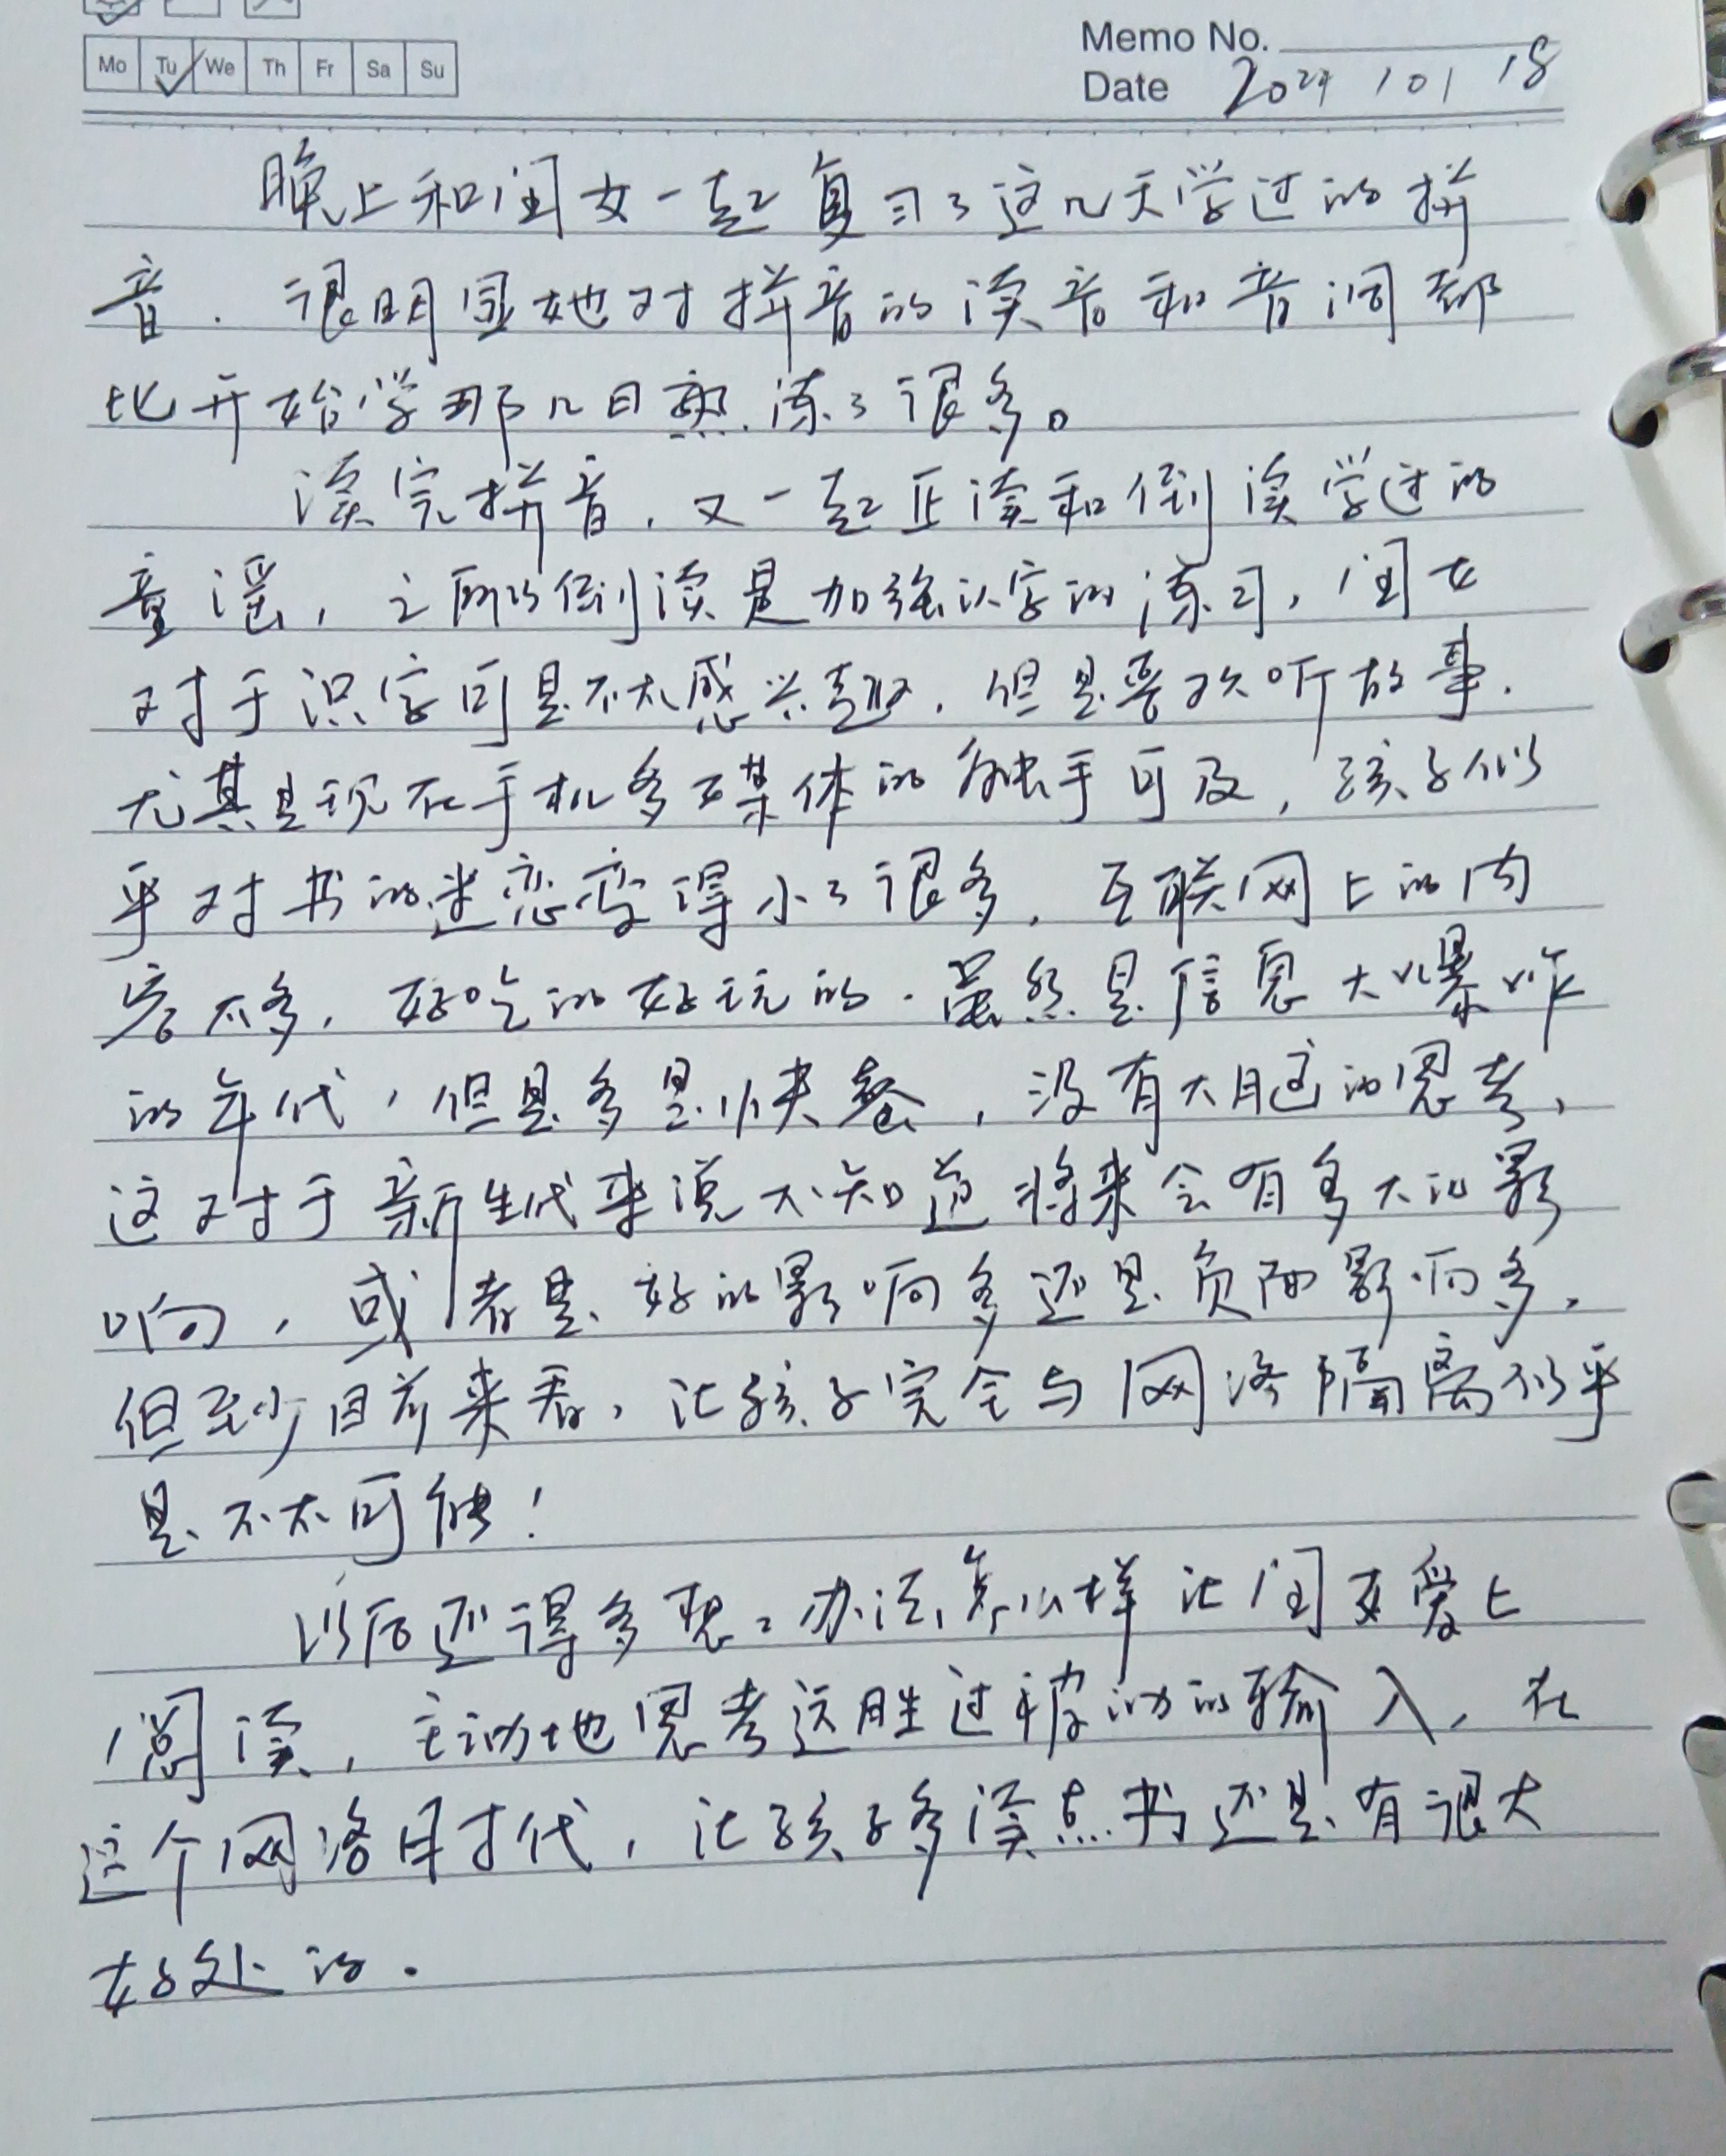 Mo Tu We Th Fr Sa Su
Memo No.
Date 2024 10 18
晚上和闺女一起复习了这几天学过的拼
音．很明显她对拼音的读音和音调都
比开始学那几日熟练了很多。
读完拼音，又一起正读和倒读学过的
童谣，之所以倒读是加强认字的练习，闺女
对于识字可是不太感兴趣，但是喜欢听故事．
尤其是现在手机多媒体的触手可及，孩子似
乎对书的迷恋变得小了很多，互联网上的内
容太多，好吃的好玩的．虽然是信息大爆炸
的年代，但是多是快餐，没有大脑的思考，
这对于新生代来说不知道将来会有多大的影
响，或者是好的影响多还是负面影响多，
但至少目前来看，让孩子完全与网络隔离似乎
是不太可能！
以后还得多想想办法，怎么样让闺女爱上
阅读，主动地思考远胜过被动的输入，在
这个网络时代，让孩子多读点书还是有很大
好处的．